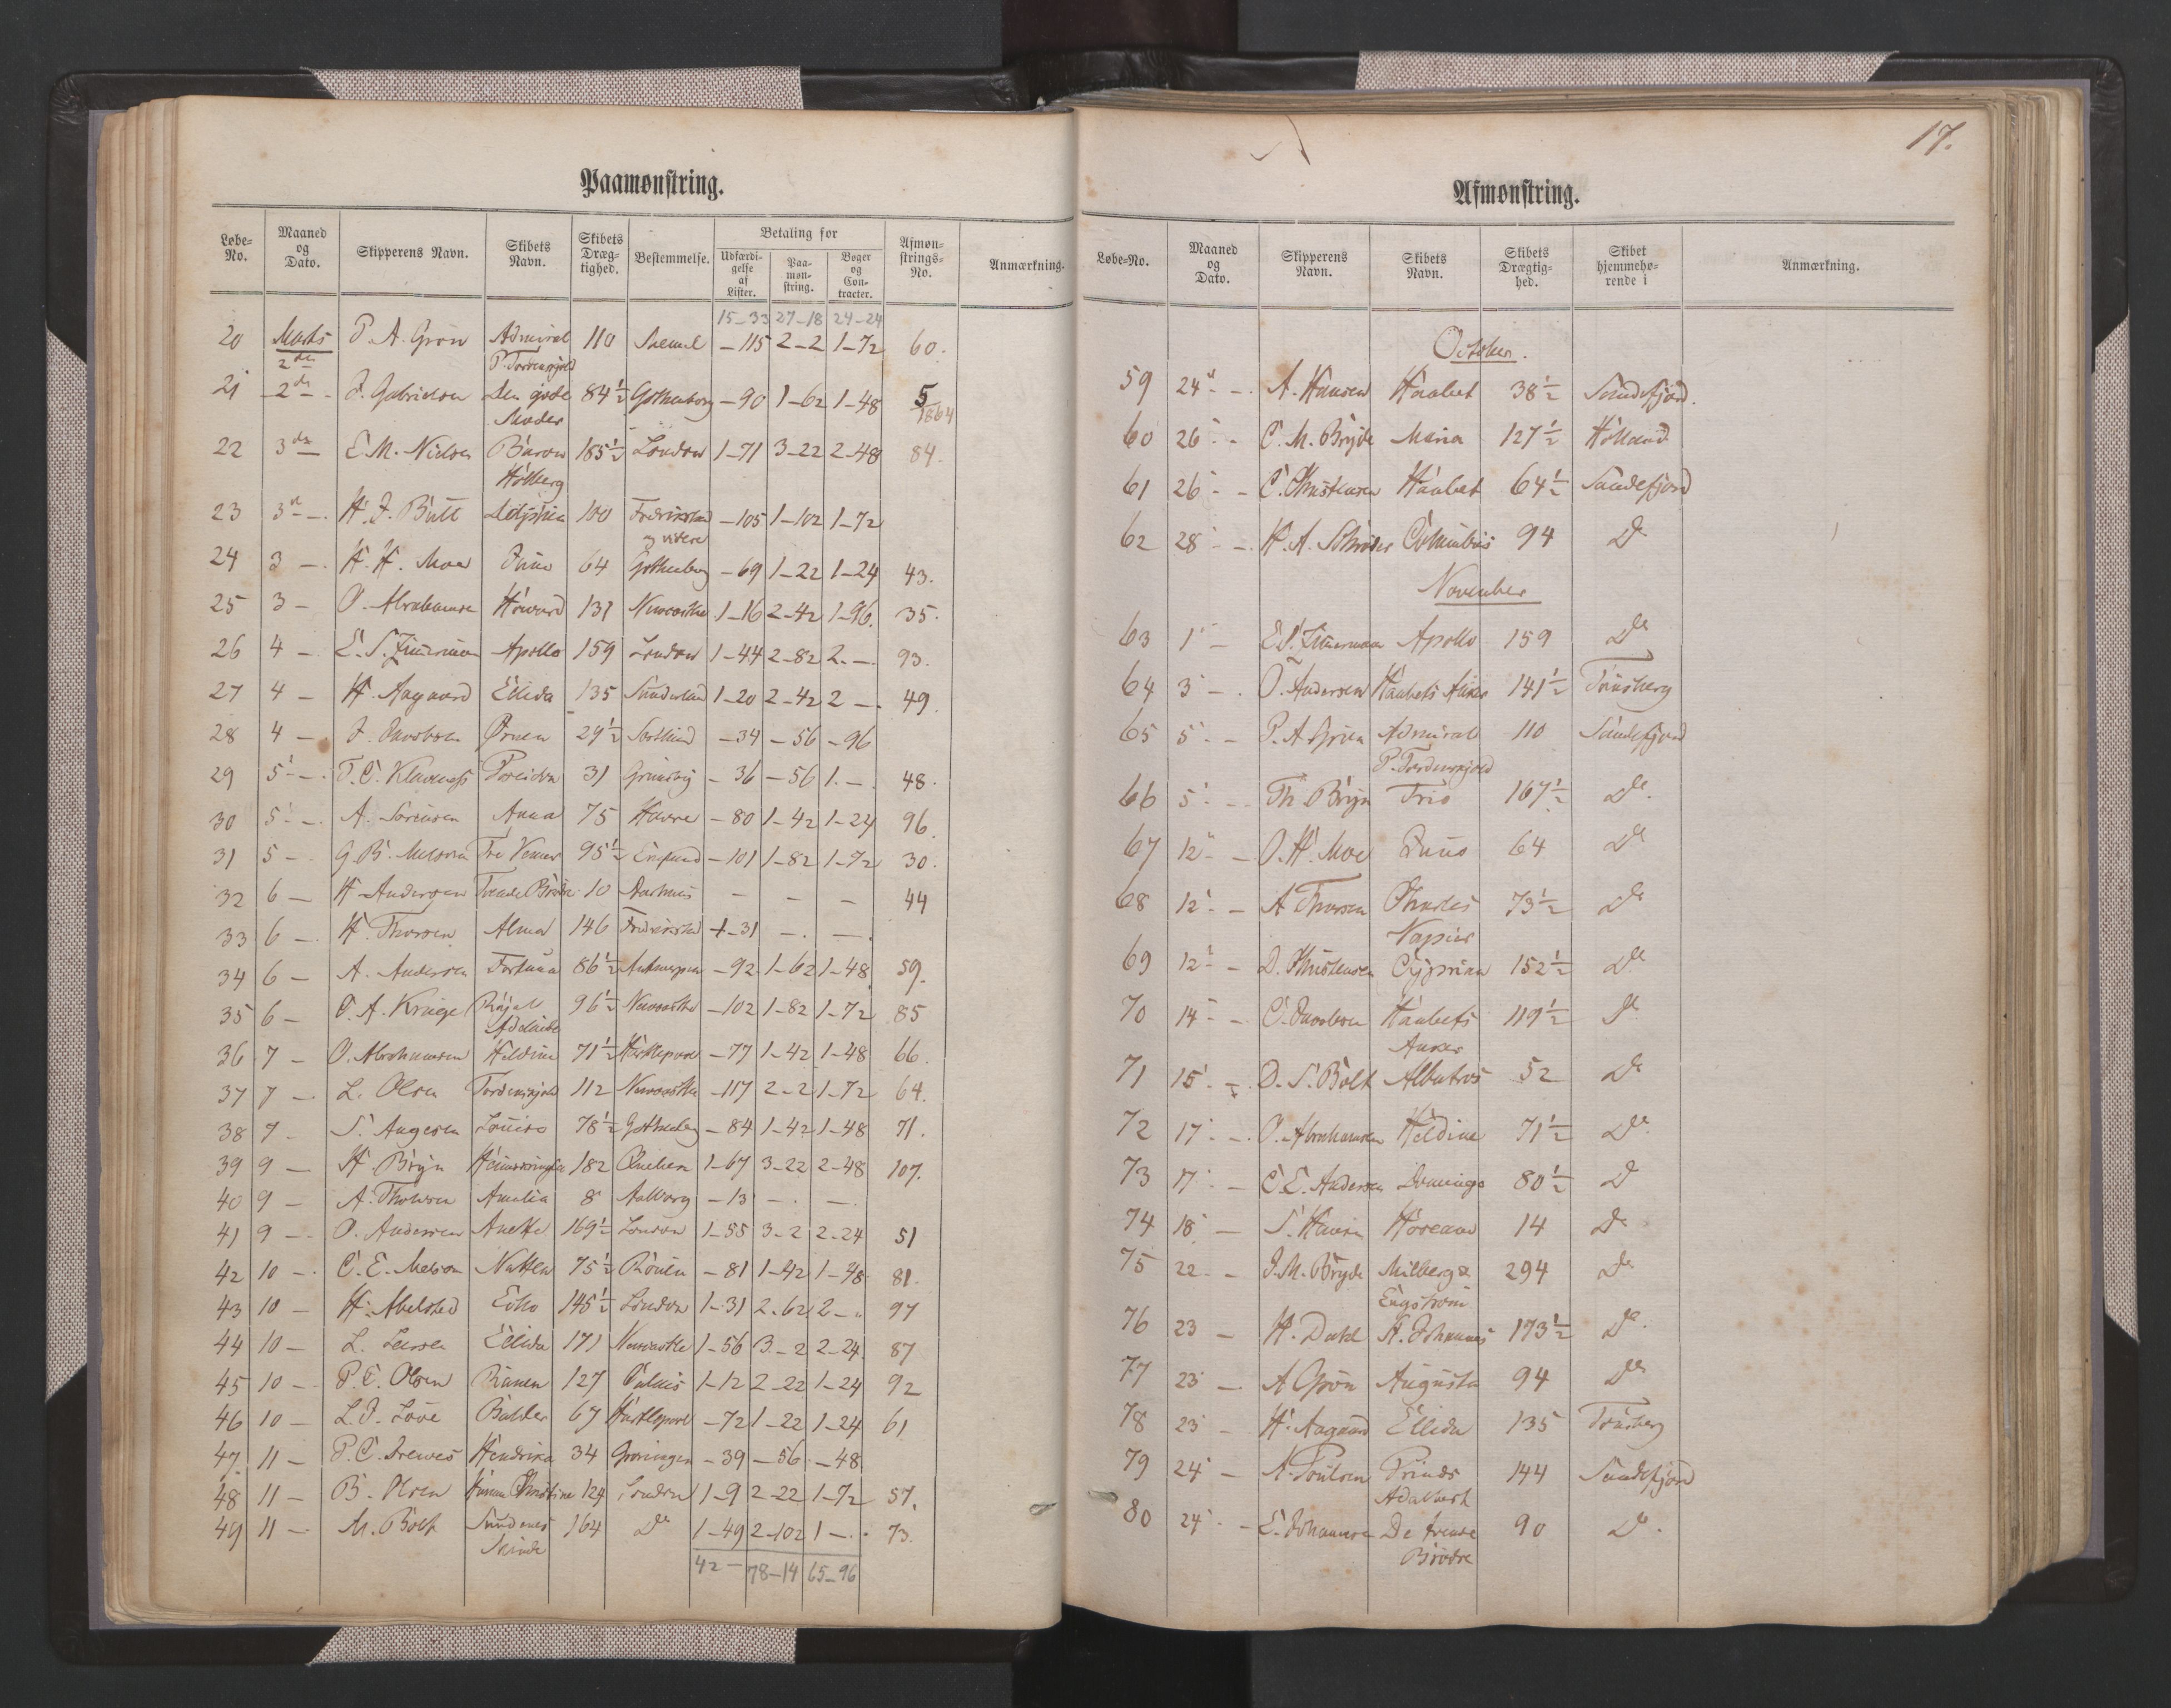 Paamønstring.
Løbe-No. Maaned og Dato. Skipperens Navn. Skibets Navn. Skibets Drægtighed. Bestemmelse. Betaling for Udfærdigelse af Lister. Paamønstring. Bøger og Contracter. Afmønstrings-No. Anmærkning.
15-33 27-18 24-24
20 Marts 2den P. A. Grøn Admiral P. Tordenskjold 110 -115 2-2 1-72 60.
21 2de - J. Gabrielsen Den gode Moder 84½ Gothenborg -90 1-62 1-48 5/1864
22 3de E. M. Nielsen Baron Holberg 185½ London 1-71 3-22 2-48 84.
23 3die - H. J. Bull Delphin 100 Fredrikstad og videre -105 1-102 1-72
24 3 - H. H. Moe Juno 64 Gothenborg -69 1-22 1-24 43.
25 3 - O. Abrahamsen Howard 131 Newcastle 1-16 2-42 1-96. 35.
26 4 - E. S. Zimerman Apollo 159 London 1-44 2-82 2.-. 93.
27 4 - H. Aagaard Ellida 135 Sunderland 1-20 2-42 2 -. 49.
28 4 - J. Jacobsen Ørnen 29½ -34 -56 -96
29 5 - T. C. Klaveness Poseidon 31 Grimsby -36 -56 1.-. 48.
30 5 - A. Sørensen Anna 75 Havre -80 1-42 1-24 96.
31 5 - G. B. Melsom Tre Venner 95½ England -101 1-82 1-72 30.
32 6 - H. Andersen Trende Brødre 10 Aarhuus - - - 44
33 6 - H. Thorsen Alma 146 Fredrikstad 1-31 -. -.
34 6 - A. Andersen Fortuna 86½ Antwerpen -92 1-62 1-48 59.
35 6 - T. A. Kruge Royal Adelaide 96½ Newcastle -102 1-82 1-72 85
36 7 - O. Abrahamsen Heldine 71½ Hartlepool -77 1-42 1-48 66.
37 7 - L. Olsen Tordenskjold 112 Newcastle -117 2-2 1-72 64.
38 7 - S. Augesen Louise 78½ Gothenborg -84 1-42 1-48 71.
39 9 - H. Bryn Heimskringla 182 Quebec 1-67 3-22 2-48 107.
40 9 - A. Thorsen Amalia 8 Aalborg -13 -. -.
41 9 - O. Andersen Anette 169½ London 1-55 3-2 2-24 51
42 10 - C. E. Melsom Natten 75½ Rouen -81 1-42 1-48 81.
43 10 - H. Abelsted Echo 145½ London 1-31 2-62 2-.. 97
44 10 - L. Larsen Ellida 171 Newcastle 1-56 3-2 2-24 87
45 10 - P. C. Olsen Runen 127 Calais 1-12 2-22 1-24 92
46 10 - L. J. Love Balder 67 Hartlepool -72 1-22 1-24 61
47 11 - P. C. Drewes Hendrika 34 Groningen -39 -56 -48
48 11 - B. Olsen Christine 124 London 1-9 2-22 1-72 57.
49 11 - M. Bolt 164 Do 1-49 2-102 1-. 73.
42- 78-14 65-96
17.
Afmønstring.
Løbe-No. Maaned og Dato. Skipperens Navn. Skibets Navn. Skibets Drægtighed. Skibet hjemmehørende i Anmærkning.
October.
59 24 - A. Hansen Haabet 38½ Sandefjord.
60 26 - C. M. Bryde Maria 127½ Holland
61 26 - C. Christensen Haabet 64½ Sandefjord
62 28 - H. A. Schrøder Columbus 94 Do
November
63 1 - E. S. Zimerman Apollo 159 Do
64 3 - O. Andersen Haabets Anker 141½ Tønsberg
65 5 - P. A. Grøn Admiral P. Tordenskjold 110 Sandefjord
66 5 - Th. Bryn Trio 167½ Do.
67 12 - O. H. Moe Juno 64 Do
68 12 - A Thorsen Charles Napier 73½ Do
69 12 - D. Christensen Cyprian 152½ Do
70 14 - C. Jacobsen Haabets Anker 119½ Do
71 15 - D. S. Bolt Albatros 52 Do
72 17 - O. Abrahamsen Heldine 71½ Do
73 17 - C. E. Andersen Domingo 80½ Do
74 18 - S. Hansen 14 Do
75 22 - J. M. Bryde Milberg & Engstrøm 294 Do
76 23 - H. Dahl St. Johannes 173½ Do.
77 23 - A Grøn Augusta 94 Do
78 23 - H. Aagaard Ellida 135 Tønsberg
79 24 - A. Poulsen Prinds Adalbert 144 Sandefjord
80 24 - E. Johannsen De trende Brødre 90 Do.